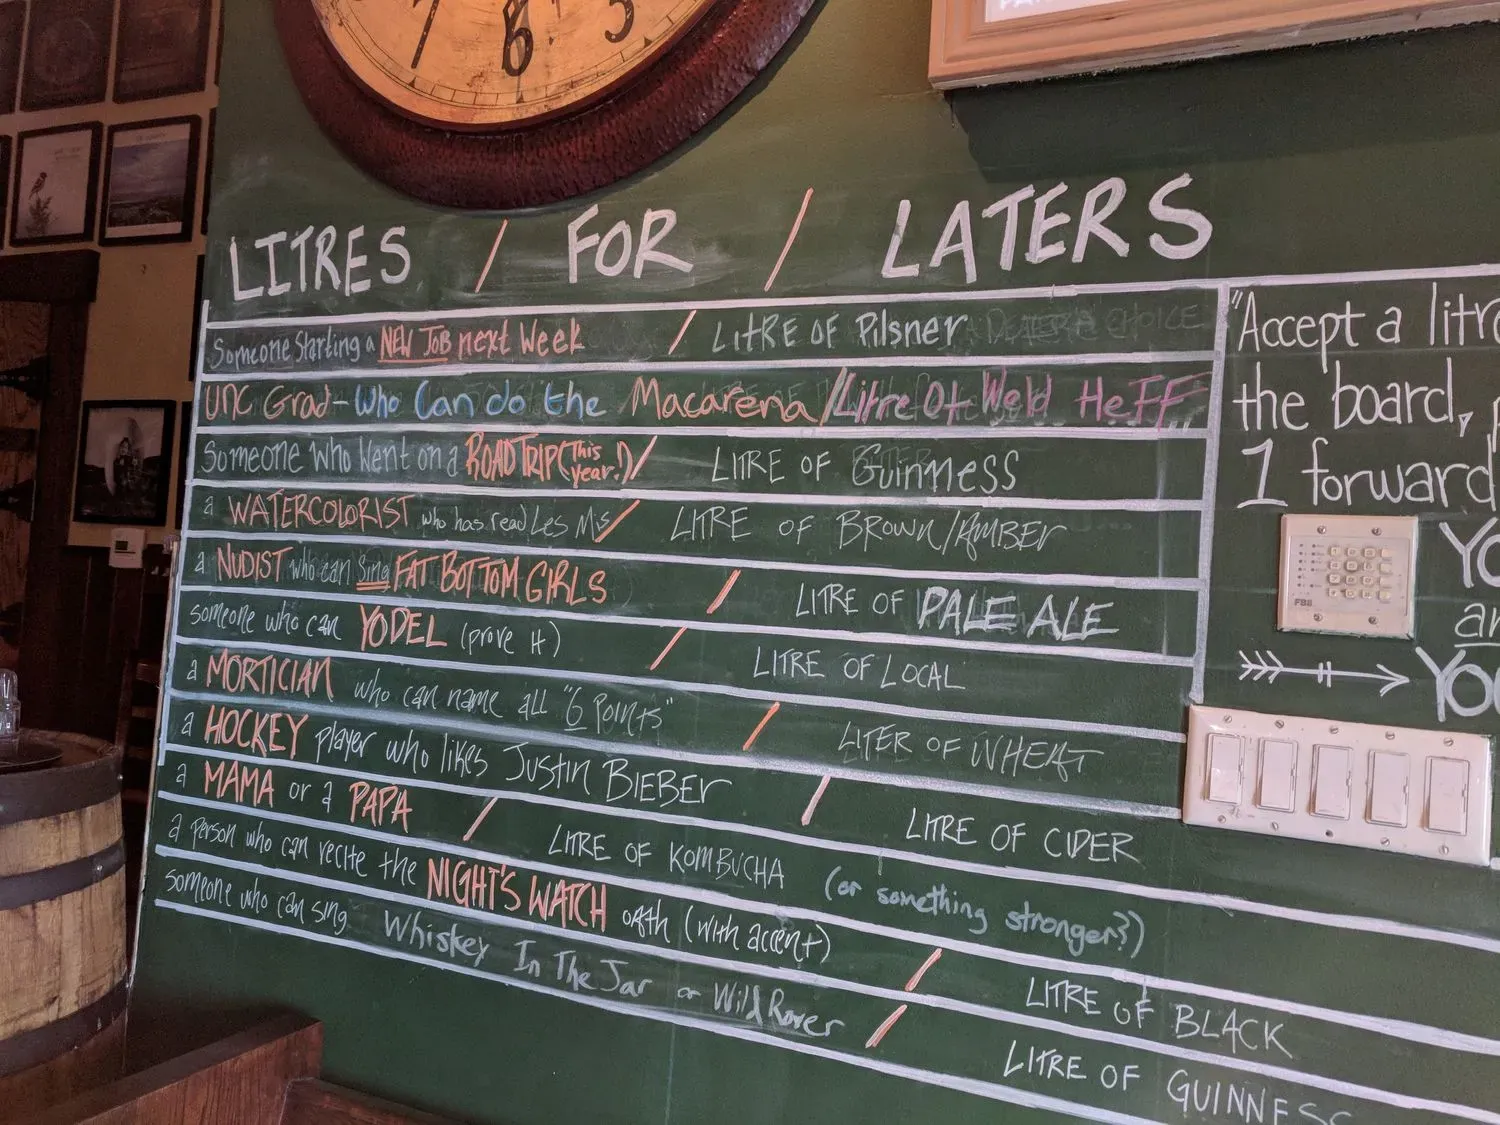 7 6 5
LITRES / FOR / LATERS
Someone Starting a NEW JOB next Week / LITRE OF Pilsner
UNC Grad - Who Can do the Macarena / Litre Of Weld HeFF
Someone who Went on a ROADTRIP (This year!) / LITRE OF Guinness
a WATERCOLORIST who has read Les Mis / LITRE OF BROWN/AMBER
a NUDIST who can Sing FAT BOTTOM GIRLS / LITRE OF PALE ALE
someone who can YODEL (prove it) / LITRE OF LOCAL
a MORTICIAN who can name all "6 Points" / LITER OF WHEAT
a HOCKEY player who likes JUSTIN BIEBER / LITRE OF CIDER
a MAMA or a PAPA / LITRE OF KOMBUCHA (or something stronger?)
a person who can recite the NIGHT'S WATCH oath (with accent) / LITRE OF BLACK
someone who can sing Whiskey In The Jar or Wild Rover / LITRE OF GUINNESS
"Accept a litre
the board,
1 forward